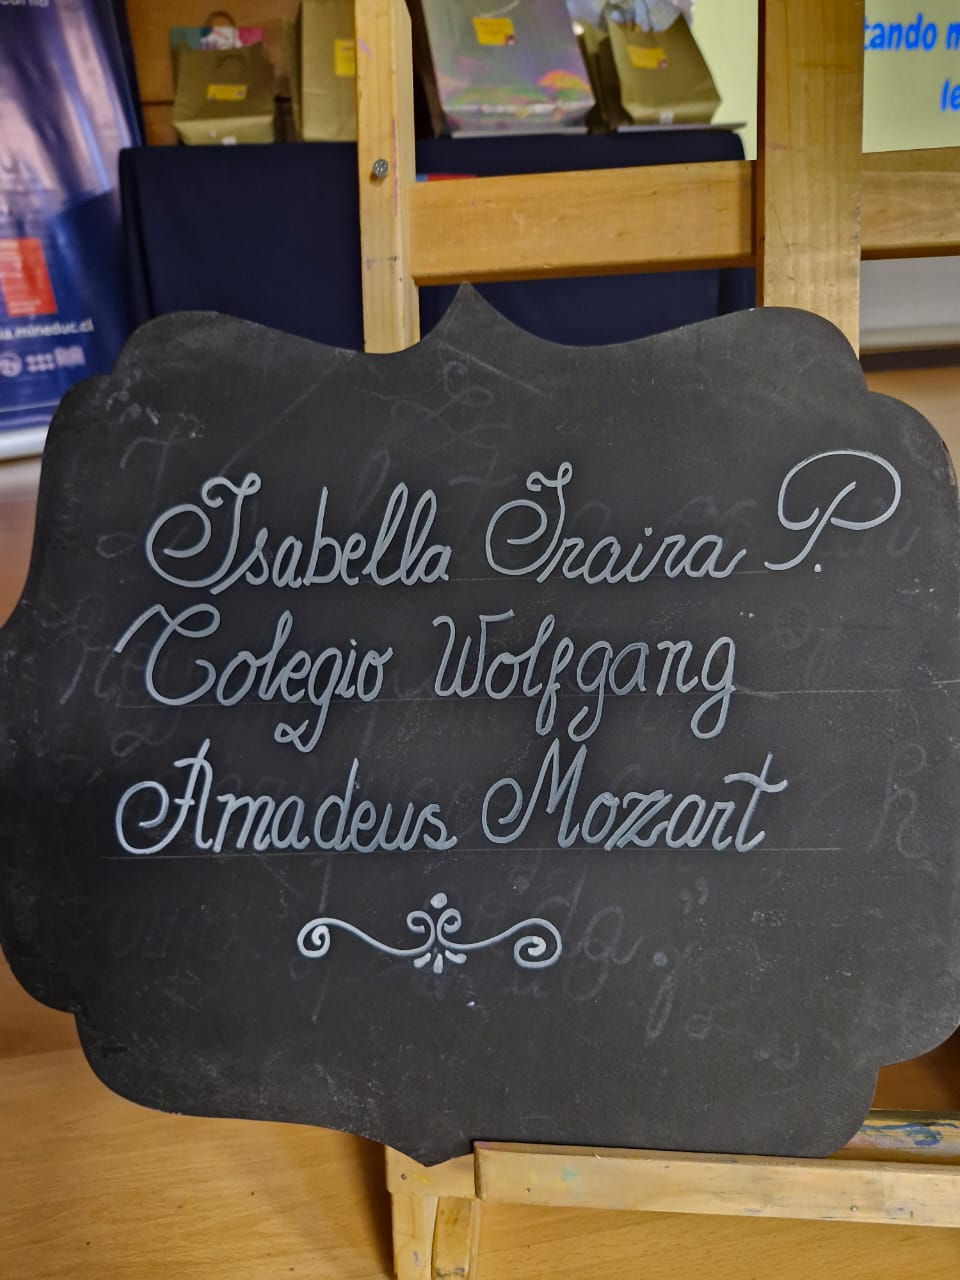 tando m
le
ia.mineduc.cl
Isabella Iraira P.
Colegio Wolfgang
Amadeus Mozzart